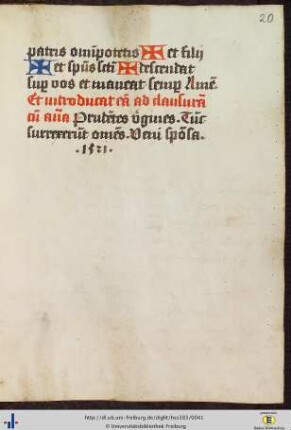 20
patris om̄ipotētis ✠ et filij
✠ et spūs sc̄ti ✠ descendat
sup̱ vos et maneat semp̱ Amē.
Et introducat eā ad clausurā
cū an̄a Prudētes v̄gines. Tūc
surrexerūt om̄es. Veni spōsa.
.1521.
http://dl.ub.uni-freiburg.de/diglit/hs1103/0041
© Universitätsbibliothek Freiburg